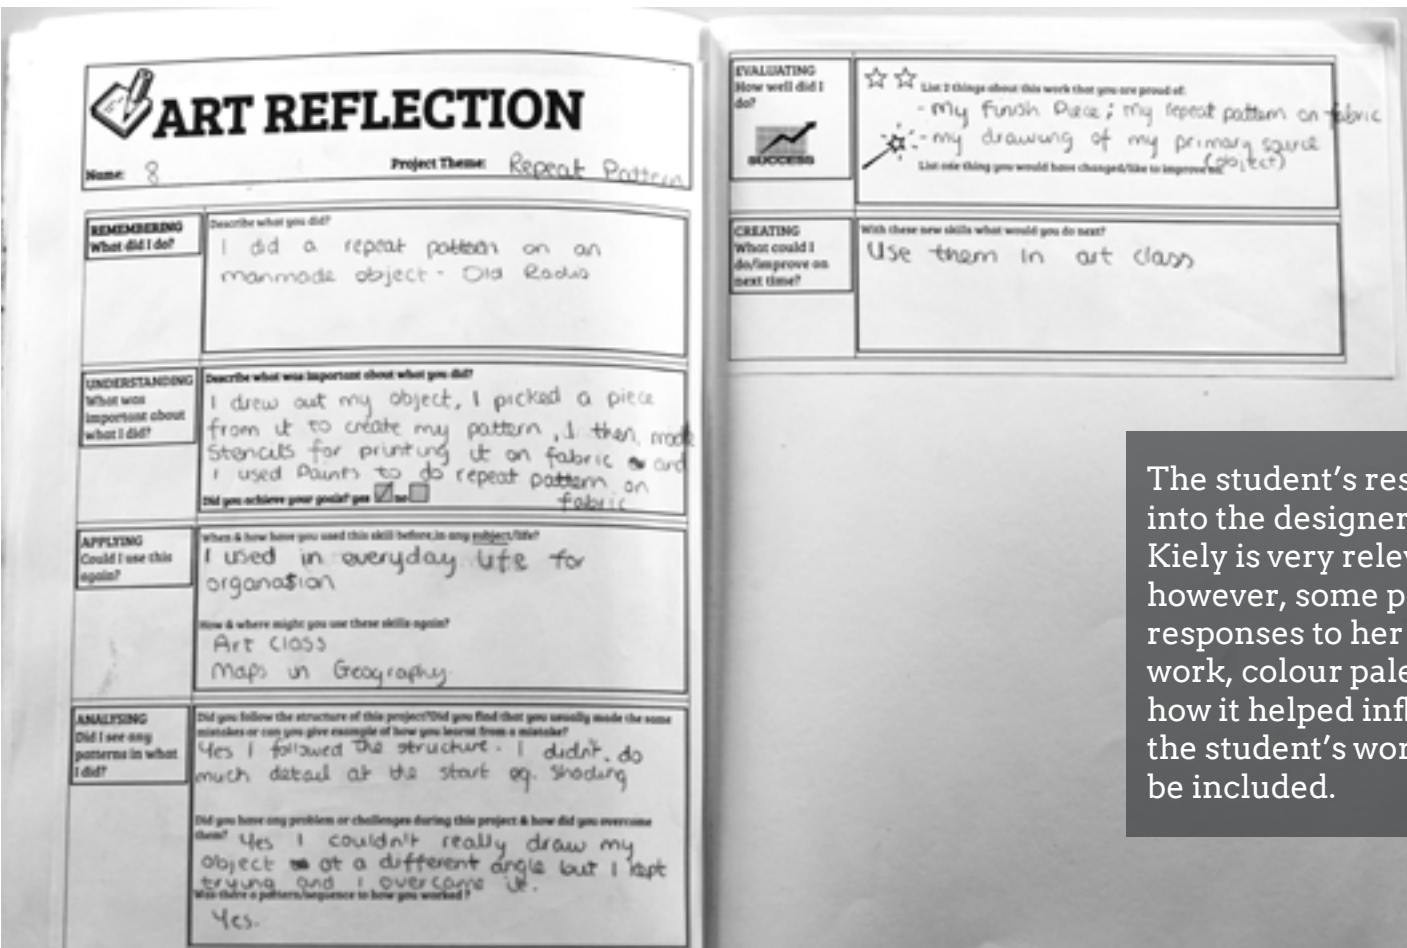 ART REFLECTION
Name: 8
Project Theme: Repeat Pattern
REMEMBERING
What did I do?
Describe what you did?
I did a repeat pattern on an
manmade object - Old Radio
UNDERSTANDING
What was
important about
what I did?
Describe what was important about what you did?
I drew out my object, I picked a piece
from it to create my pattern, I then made
Stencils for printing it on fabric and
I used Paints to do repeat pattern on
fabric
Did you achieve your goals? yes no
APPLYING
Could I use this
again?
When & how have you used this skill before, in any subject/life?
I used in everyday life for
organastion
How & where might you use these skills again?
Art Class
Maps in Geography.
ANALYSING
Did I see any
patterns in what
I did?
Did you follow the structure of this project? Did you find that you usually made the same
mistakes or can you give example of how you learnt from a mistake?
Yes I followed the structure. I didn't do
much detail at the start eg. Shading
Did you have any problem or challenges during this project & how did you overcome
them? Yes I couldn't really draw my
object at a different angle but I kept
trying and I overcame it.
Was there a pattern/sequence to how you worked?
Yes.
EVALUATING
How well did I
do?
SUCCESS
List 2 things about this work that you are proud of:
- My Finish Piece; my repeat pattern on fabric
- my drawing of my primary source
(object)
List one thing you would have changed/like to improve on:
CREATING
What could I
do/improve on
next time?
With these new skills what would you do next?
Use them in art class
The student's res
into the designer
Kiely is very relev
however, some p
responses to her
work, colour pale
how it helped infl
the student's wor
be included.